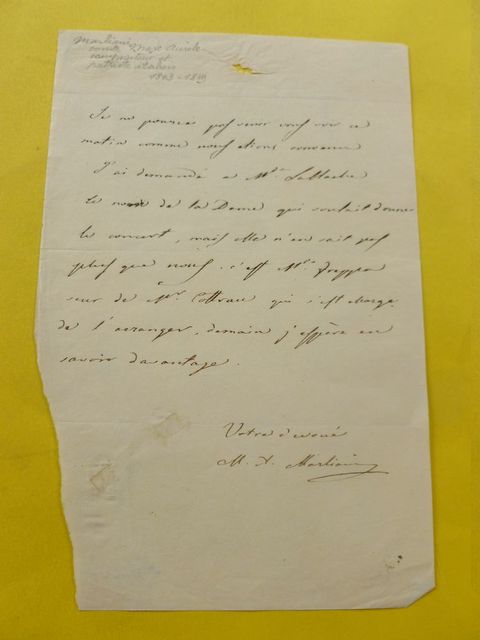 Marliani
comte Marc Aurèle
compositeur et
patriote italien
1803-1849
Je ne pourrai pas venir vous voir ce
matin comme nous étions convenu
J'ai demandé a Mde Lablache
le nom de la Dame qui voulait donner
le concert, mais elle n'en sait pas
plus que nous. c'est Mde
sœur de Mr. Cottrau qui s'est chargé
de l'arranger, demain j'espère en
savoir davantage.
Votre dévoué
M. A. Marliani